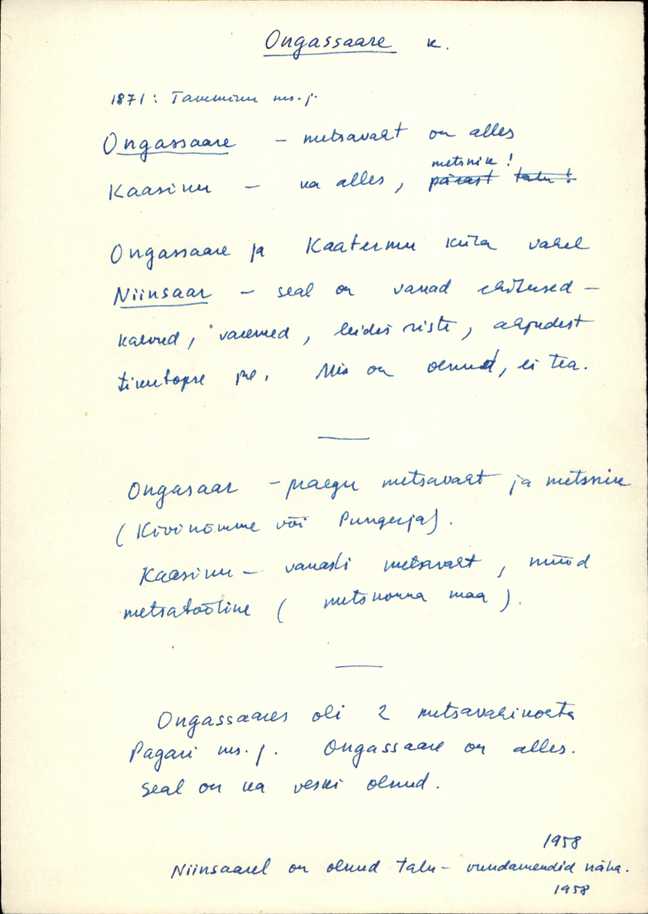 Ongassaare k.
1871: Tammiku ms. j.
Ongassaare – metsavaht on alles
metsnik!
Kaasiku – ka alles, pärast talu!
Ongassaare ja Kaatermu küla vahel
Niinsaar – seal on vanad ehitused –
kaevud, varemed, leidis riste,
Mis on olnud, ei tea.
Ongasaar – praegu metsavaht ja metsnik
(Kivinõmme või Pungerjas).
Kaasiku – vanasti metsavaht, nüüd
metsatööline ( metskonna maa ).
Ongassaares oli 2 metsavahikohta
Pagari ms. j. Ongassaare on alles.
Seal on ka veski olnud.
1958
Niinsaarel on olnud talu – vundamendid näha.
1958